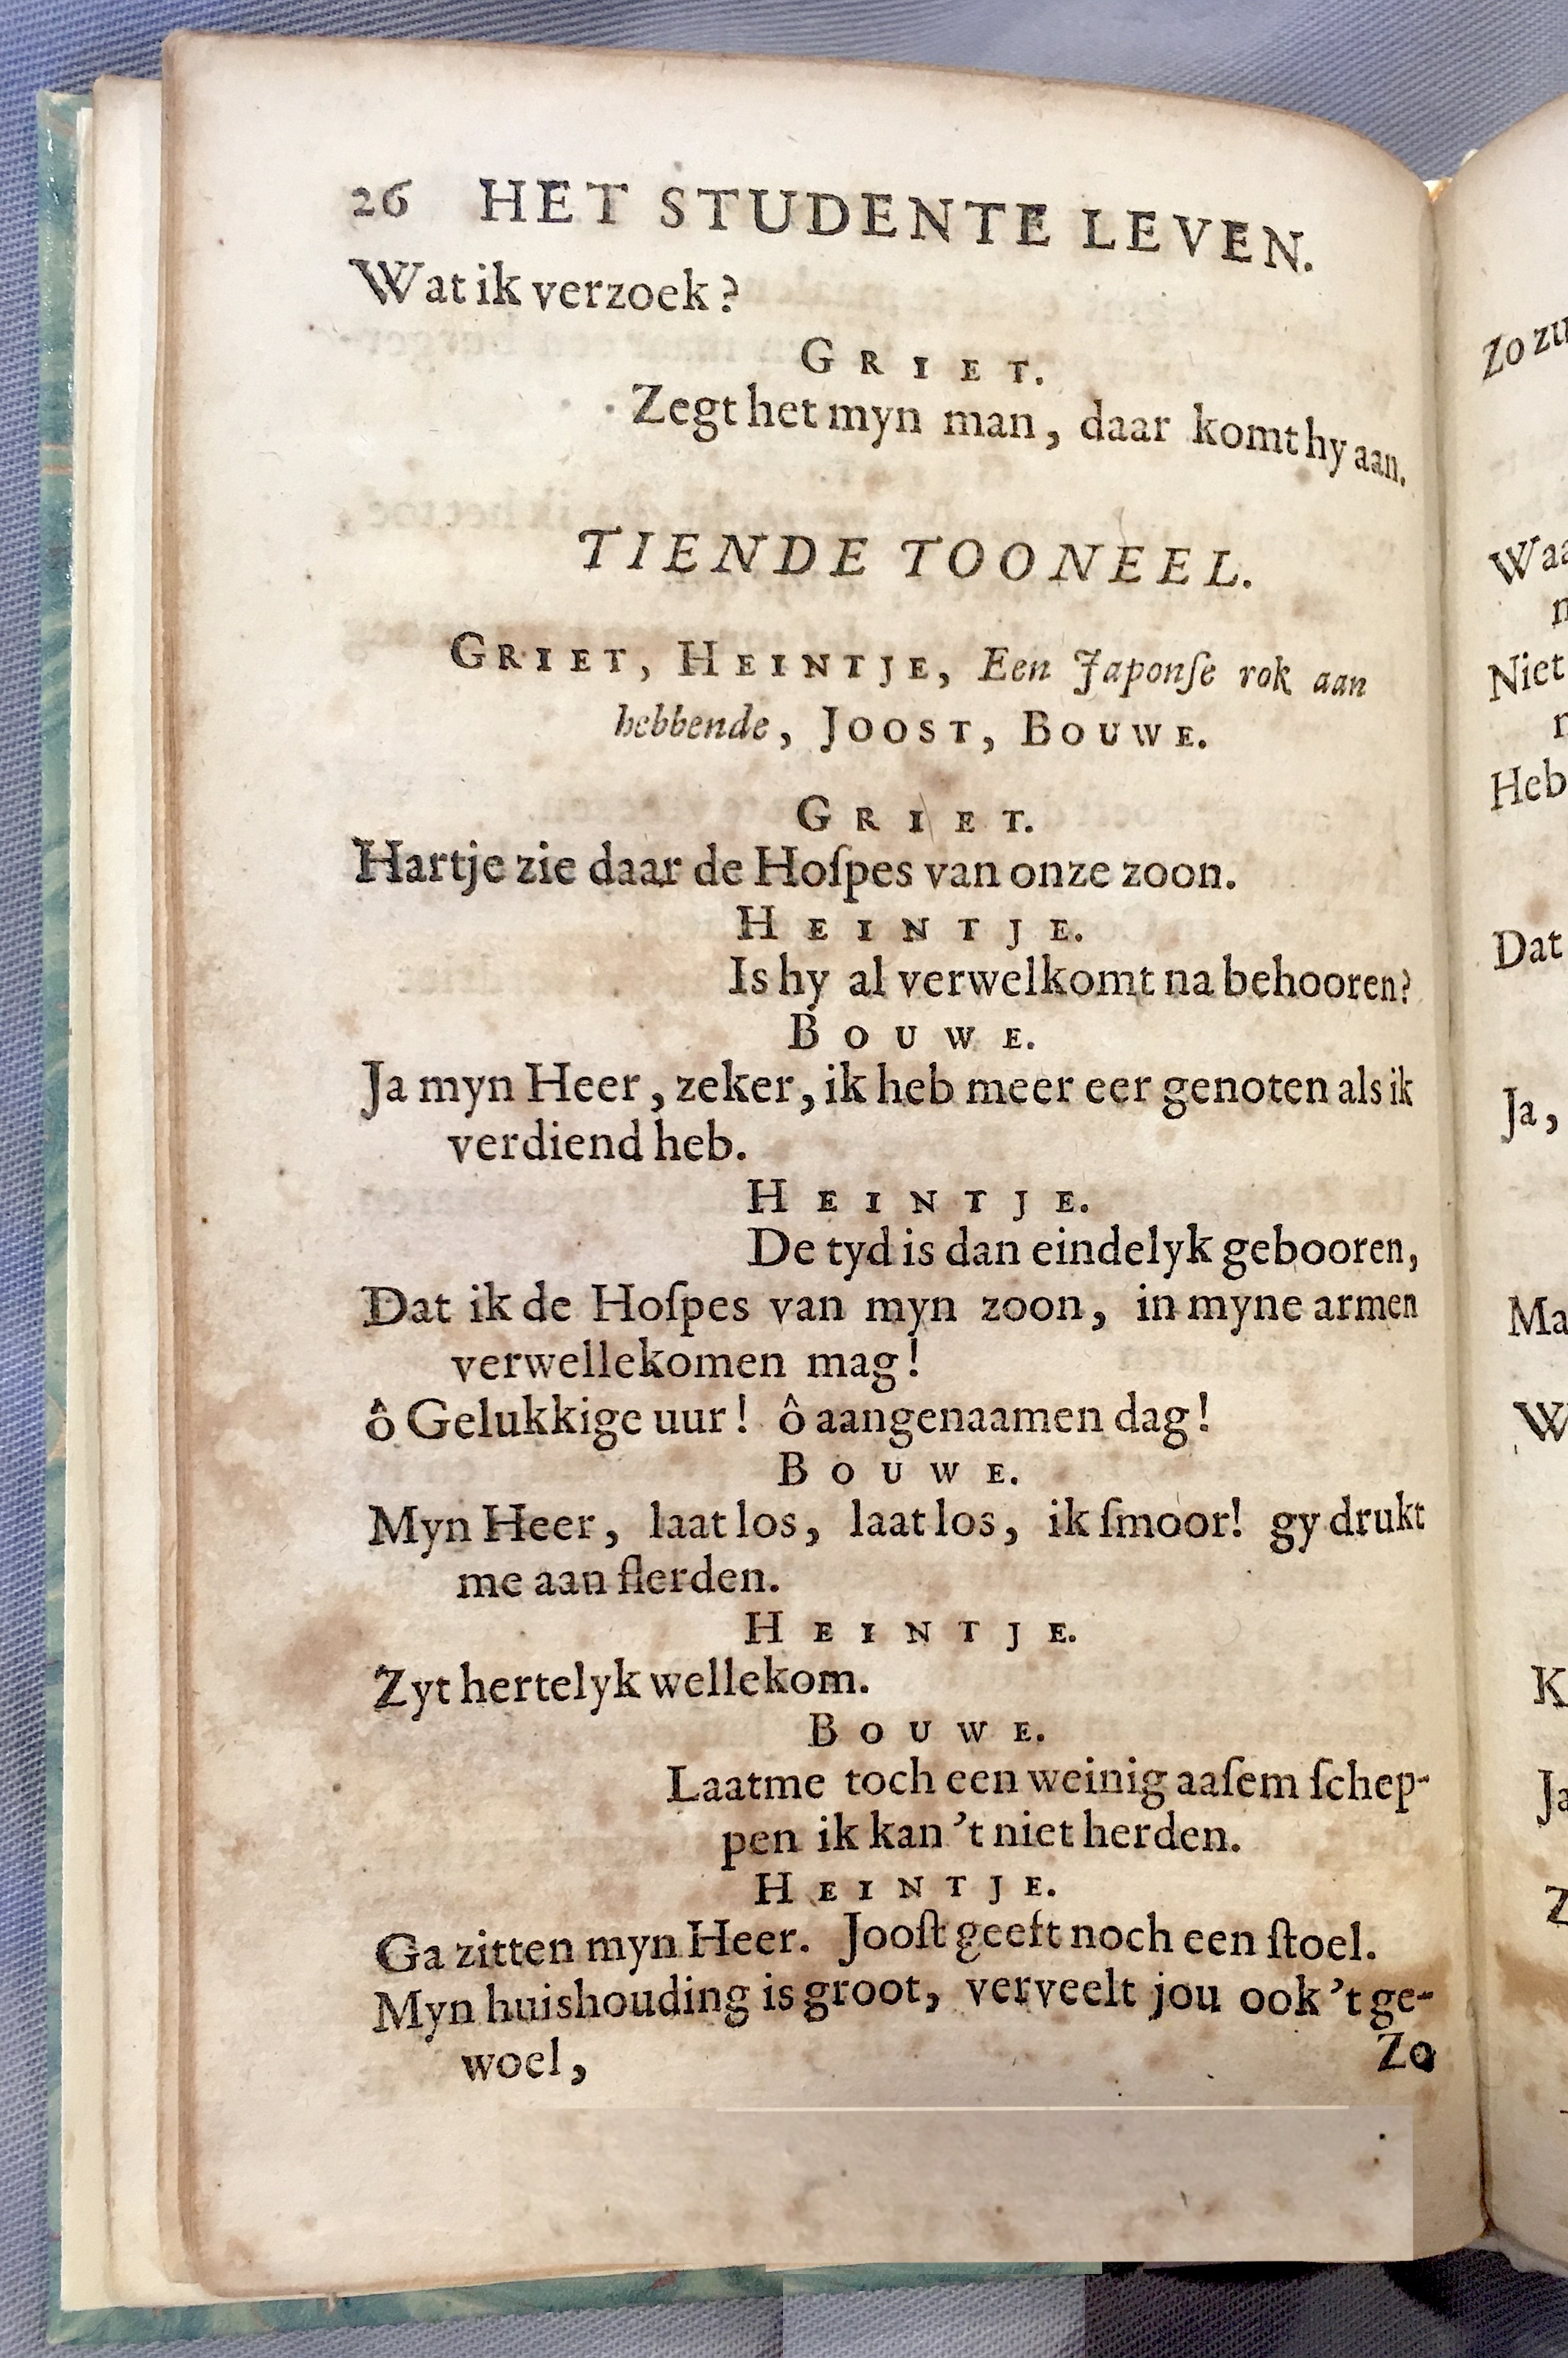 26 HET STUDENTE LEVEN.
Wat ik verzoek?
GRIET.
Zegt het myn man, daar komt hy aan.
TIENDE TOONEEL.
GRIET, HEINTJE, Een Japonſe rok aan
hebbende, JOOST, BOUWE.
GRIET.
Hartje zie daar de Hoſpes van onze zoon.
HEINTJE.
Is hy al verwelkomt na behooren?
BOUWE.
Ja myn Heer, zeker, ik heb meer eer genoten als ik
verdiend heb.
HEINTJE.
De tyd is dan eindelyk gebooren,
Dat ik de Hoſpes van myn zoon, in myne armen
verwellekomen mag!
ô Gelukkige uur! ô aangenaamen dag!
BOUWE.
Myn Heer, laat los, laat los, ik ſmoor! gy drukt
me aan flerden.
HEINTJE.
Zyt hertelyk wellekom.
BOUWE.
Laatme toch een weinig aaſem ſchep-
pen ik kan 't niet herden.
HEINTJE.
Ga zitten myn Heer. Jooſt geeft noch een ſtoel.
Myn huishouding is groot, verveelt jou ook 't ge-
woel,
Zo
Zo zu
Waa
Niet
Heb
Dat
Ja,
Ma
W
K
Ja
Z